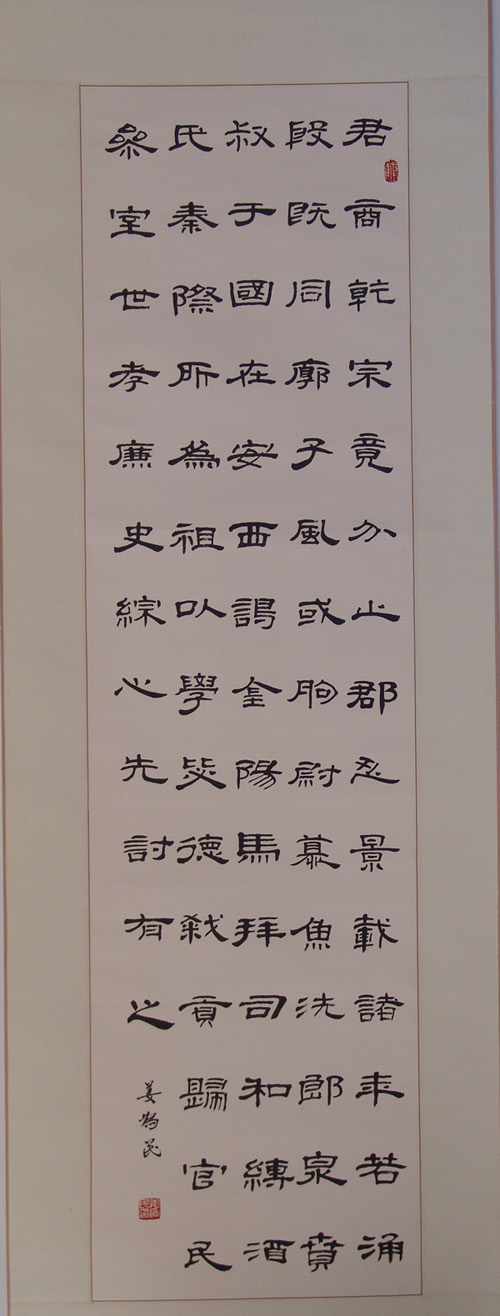 君商乾宗竟不止郡忍景載諸年若涌
段既同廓子風或朐尉慕魚洗郎泉賁
叔于國在安西謁金陽馬拜司和縛酒
氏秦際所為祖以學㢟德殺貢歸官民
癸室世孝廉史綜心先討有之
姜為民